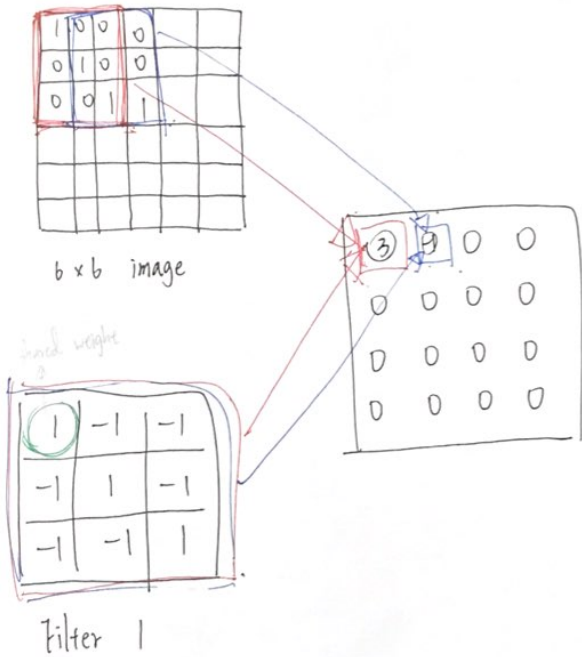 1 0 0 0
0 1 0 0
0 0 1 1
6 x 6 image
3 0 0
0 0 0 0
0 0 0 0
0 0 0 0
shared weight
1 -1 -1
-1 1 -1
-1 -1 1
Filter 1